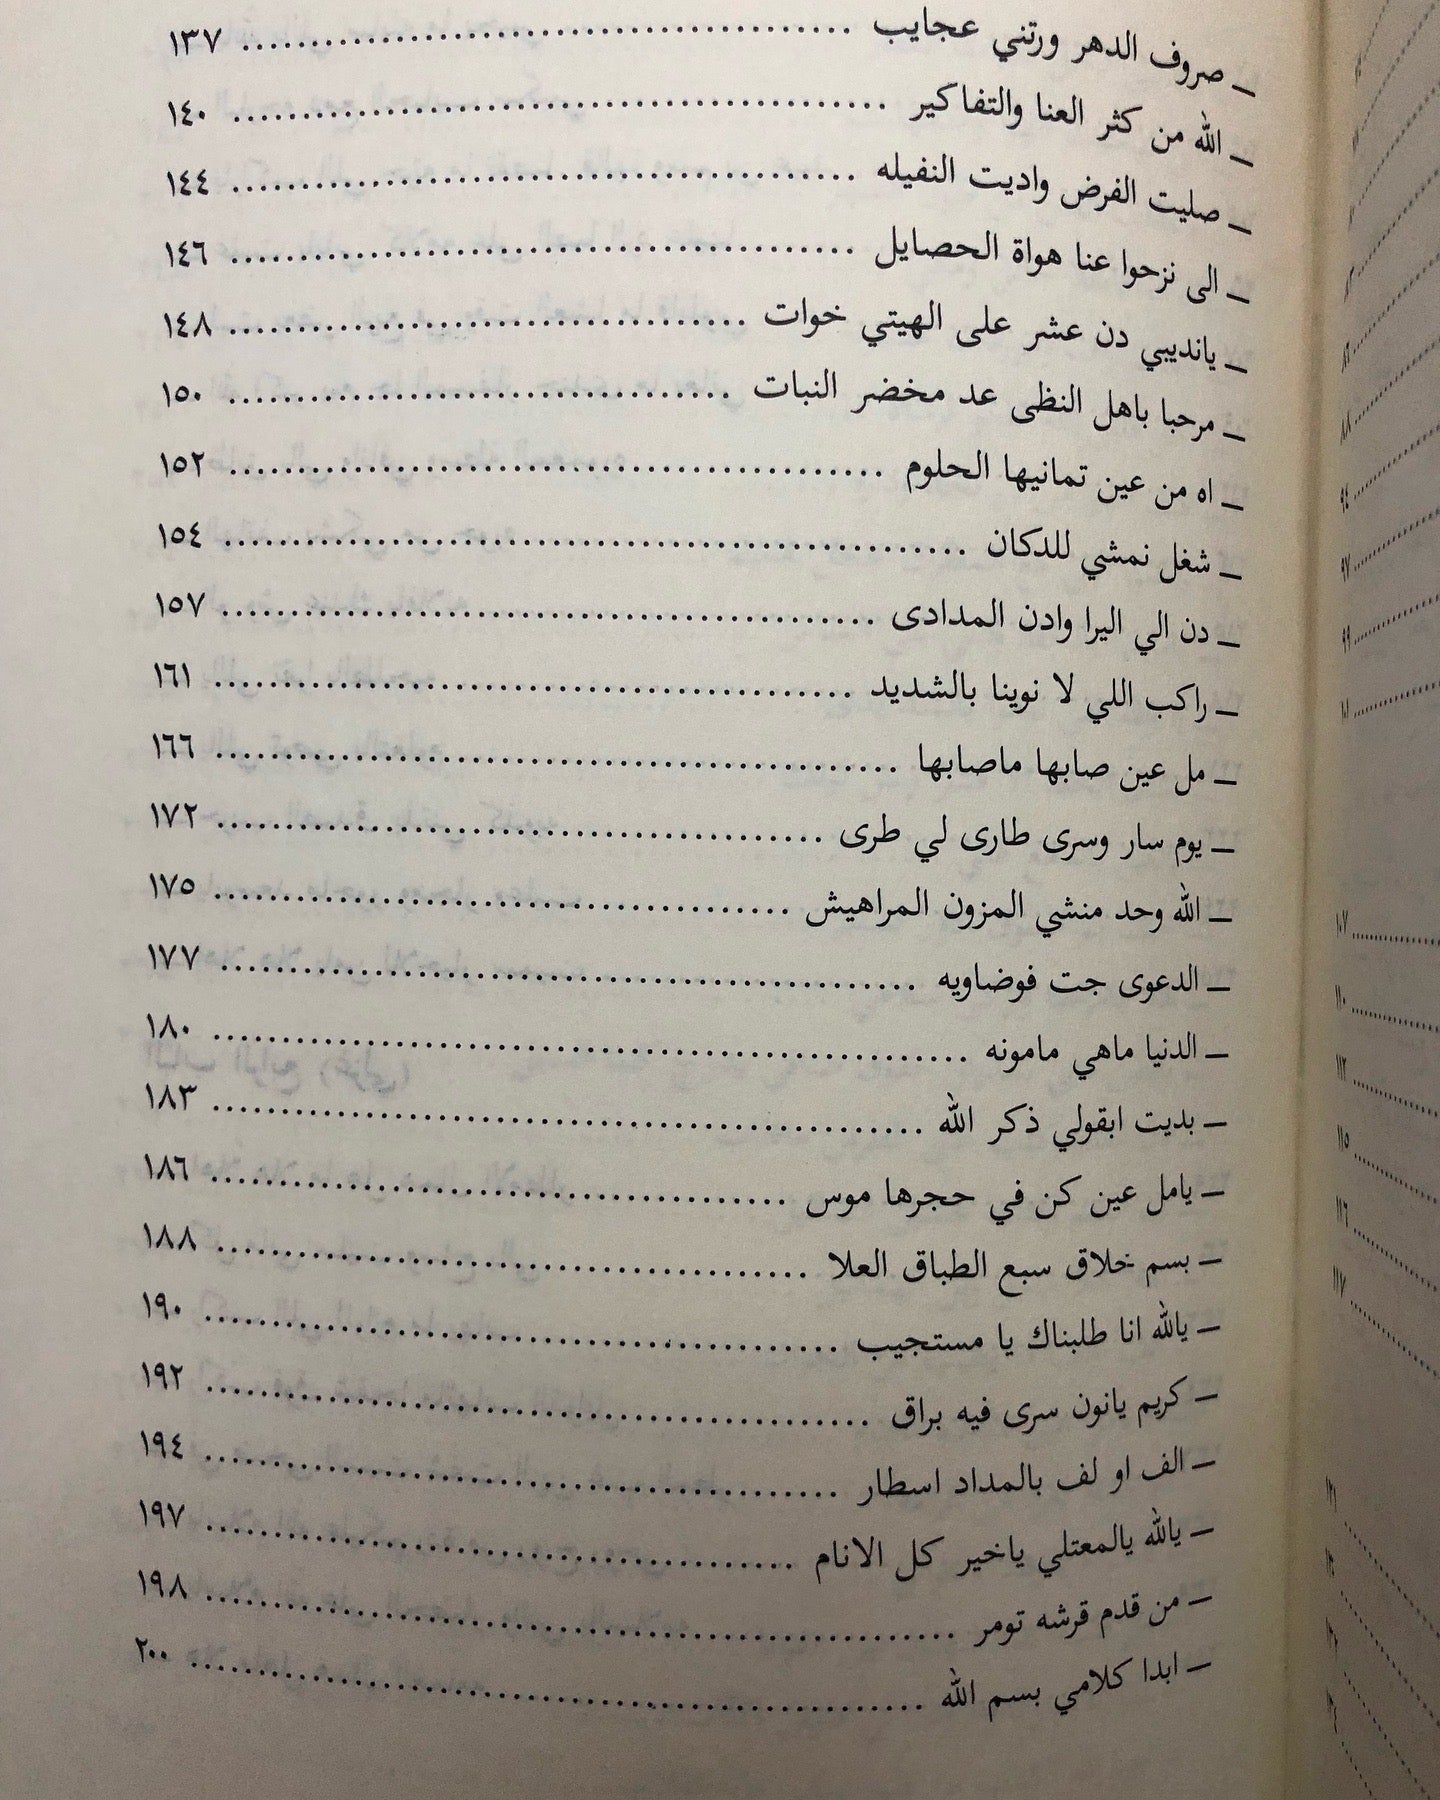 _ صروف الدهر ورتني عجايب ........ ١٣٧
_ الله من كثر العنا والتفاكير ........ ١٤٠
_ صليت الفرض واديت النفيله ........ ١٤٤
_ الى نزحوا عنا هواة الحصايل ........ ١٤٦
_ يانديبي دن عشر على الهيتي خوات ........ ١٤٨
_ مرحبا باهل النظى عد مخضر النبات ........ ١٥٠
_ اه من عين تمانيها الحلوم ........ ١٥٢
_ شغل نمشي للدكان ........ ١٥٤
_ دن الي اليرا وادن المدادى ........ ١٥٧
_ راكب اللي لا نوينا بالشديد ........ ١٦١
_ مل عين صابها ماصابها ........ ١٦٦
_ يوم سار وسرى طارى لي طرى ........ ١٧٢
_ الله وحد منشي المزون المراهيش ........ ١٧٥
_ الدعوى جت فوضاويه ........ ١٧٧
_ الدنيا ماهي مامونه ........ ١٨٠
_ بديت ابقولي ذكر الله ........ ١٨٣
_ يامل عين كن في حجرها موس ........ ١٨٦
_ بسم خلاق سبع الطباق العلا ........ ١٨٨
_ يالله انا طلبناك يا مستجيب ........ ١٩٠
_ كريم يانون سرى فيه براق ........ ١٩٢
_ الف او لف بالمداد اسطار ........ ١٩٤
_ يالله يالمعتلي ياخير كل الانام ........ ١٩٧
_ من قدم قرشه تومر ........ ١٩٨
_ ابدا كلامي بسم الله ........ ٢٠٠